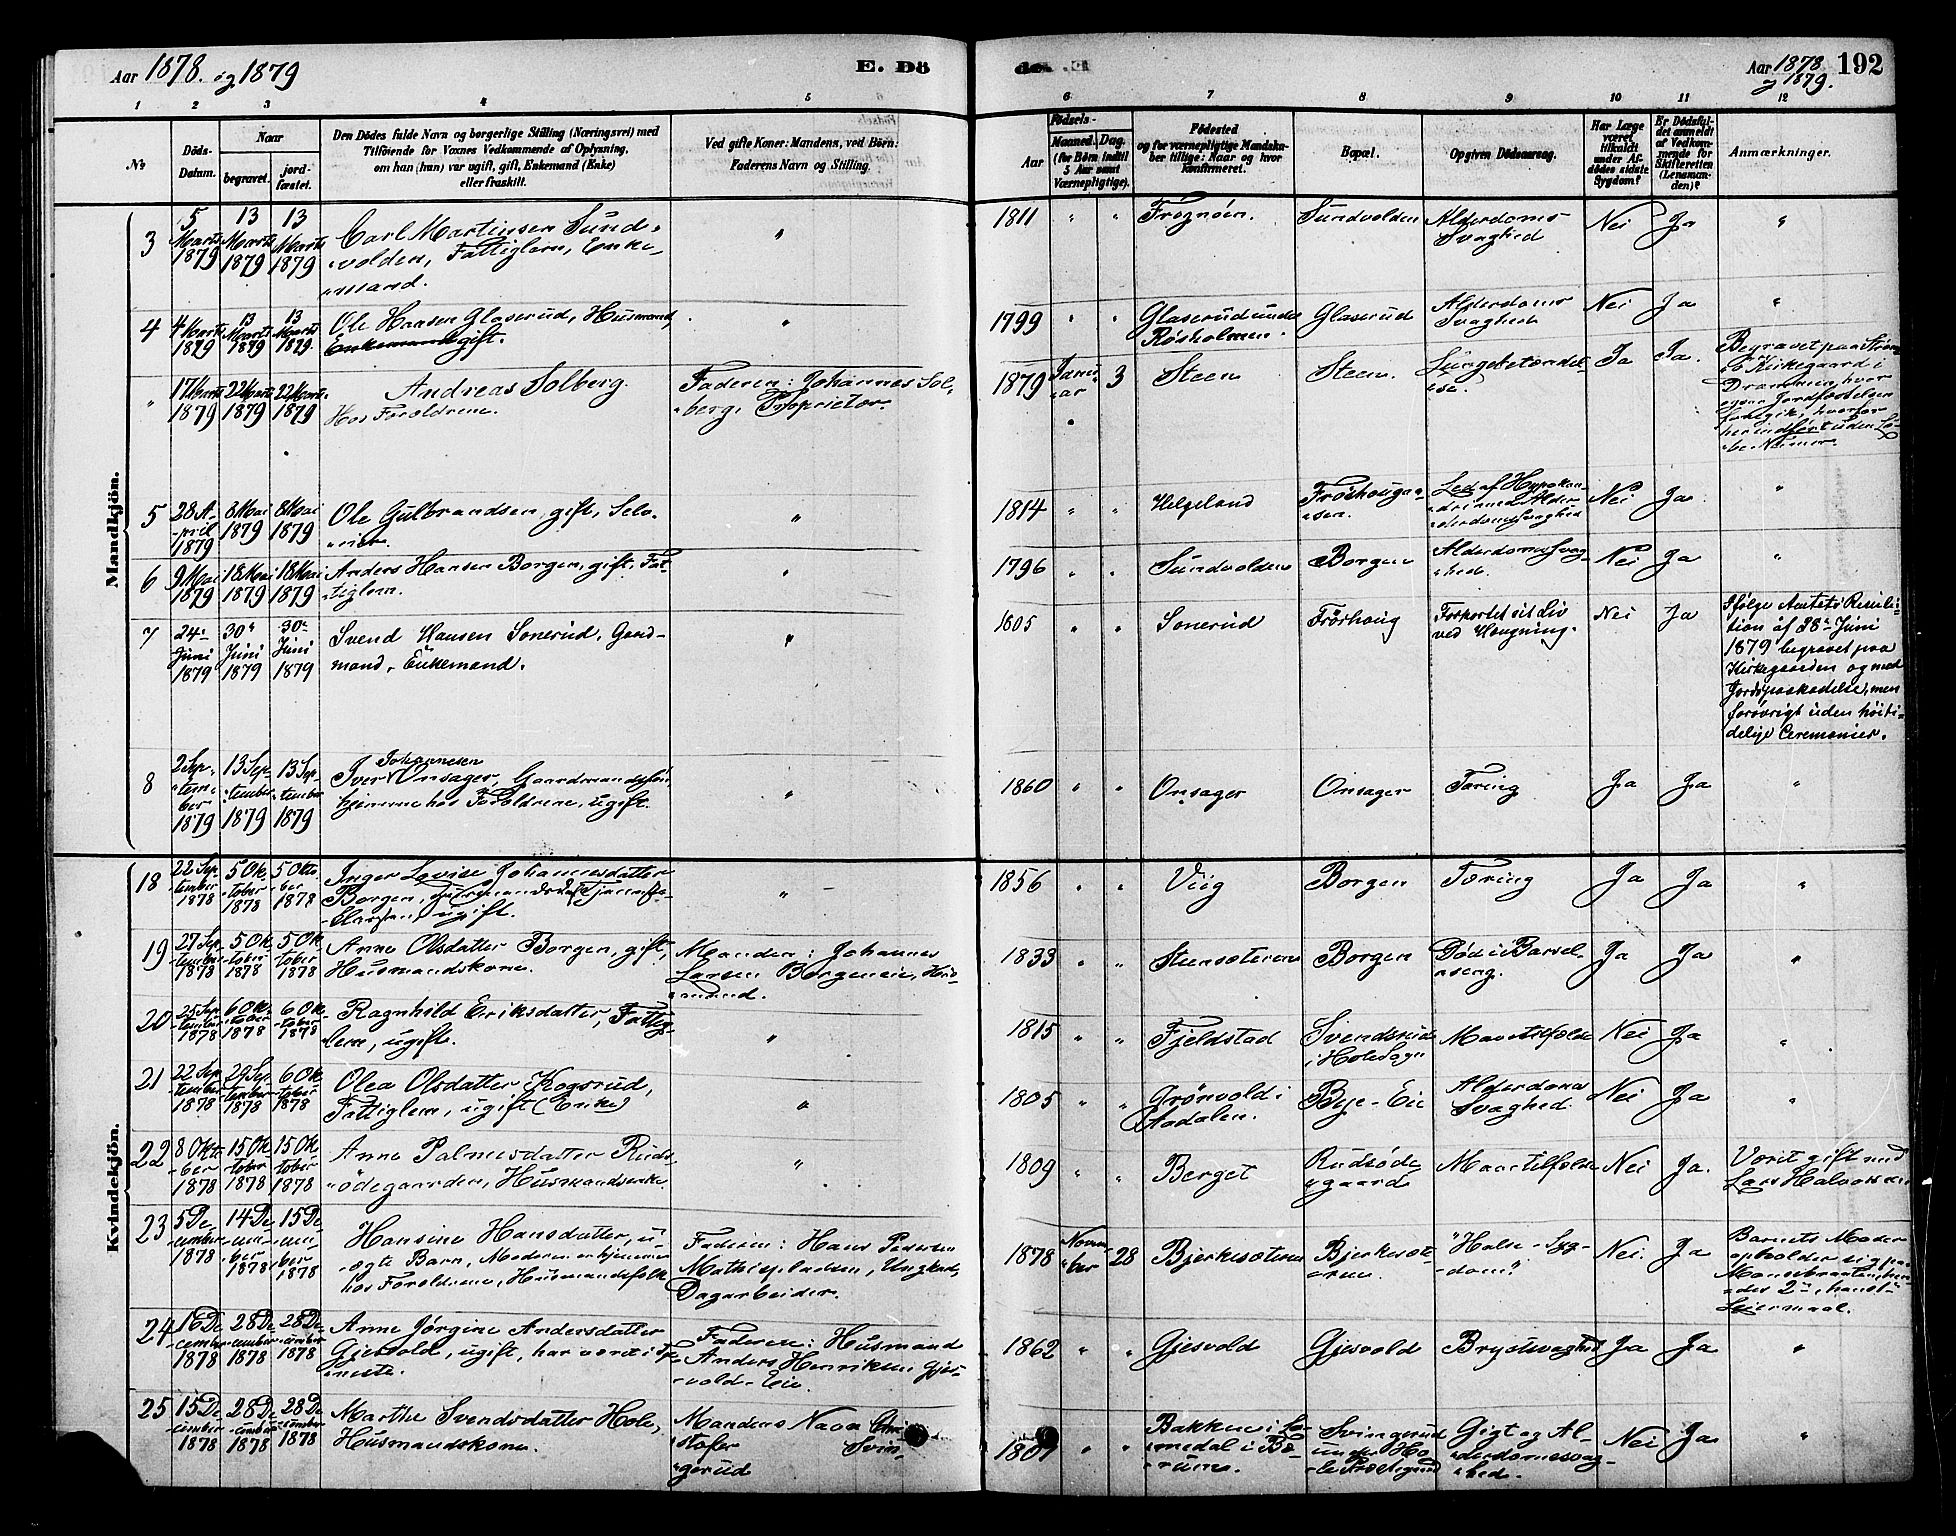 Aar 1878. og 1879
E. Dö
de. E.
Aar 1878. og 1879.
192
1 2 3 4 5 6 7 8 9 10 11 12
No
Döds-Datum.
Naar
begravet.
jord-fæstet.
Den Dödes fulde Navn og borgerlige Stilling (Næringsvei) med
Tilföiende for Voxnes Vedkommende af Oplysning,
om han (hun) var ugift, gift, Enkemand (Enke)
eller fraskilt.
Ved gifte Koner: Mandens, ved Börn:
Faderens Navn og Stilling.
Födsels-
Aar
Maaned. Dag.
(for Börn indtil
5 Aar samt
Værnepligtige).
Födested
og for værnepligtige Mandska-
ber tillige: Naar og hvor
konfirmeret.
Bopæl.
Opgiven Dödsaarsag.
Har Læge
været
tilkaldt
under Af-
dödes sidste
Sygdom?
Er Dödsfal-
det anmeldt
af Vedkom-
mende for
Skifteretten
(Lensman-
den)?
Anmærkninger.
Mandkjön.
3
5 Marts 1879
13 Marts 1879
13 Marts 1879
Carl Martinsen Sund-
volden, Fattiglem, Enke-
mand.
"
1811 " "
Sundvolden
Alderdoms
Svaghed
Nei
Ja
"
4
4 Marts 1879
13 Marts 1879
13 Marts 1879
Ole Hansen Glaserud, Husmand,
Enkemand gift.
"
1799 " "
Glaserud under
Røsholmen
Glaserud
Alderdoms
Svaghed
Nei
Ja
"
"
17 Marts 1879
22 Marts 1879
22 Marts 1879
Andreas Solberg.
Hos Forældrene.
Faderen: Johannes Sol-
berg, Proprietær.
1879 Janu-
ar 3
Steen
Steen.
Lungebetændel-
se.
Ja
Ja.
Begravet paa Strøms
Kirkegaard i
Drammen, hvor
ogsaa Jordfæstelsen
foregik, hvorfor
her indført uden Lø-
be-Numer.
5
28 A-
pril
1879
8 Mai 1879
8 Mai 1879
Ole Gulbrandsen, gift, Selv-
eier.
"
1814 " "
Helgeland
Frøshoug-
sen.
Led af Hypokon-
Nei
Ja
"
6
9 Mai 1879
18 Mai 1879
18 Mai 1879
Anders Hansen Borgen, gift, Fat-
tiglem.
"
1796 " "
Sundvolden
Borgen
Alderdoms Svag-
hed.
Nei
Ja
"
7
24 Juni 1879
30 Juni 1879
30 Juni 1879
Svend Hansen Sonerud, Gaard-
mand, Enkemand.
"
1805 " "
Sonerud
Frøshoug
Forkortet sit Liv
ved Hængning.
Nei
Ja
Ifølge Amtets Resolu-
tion af 28de Juni
1879 begravet paa
Kirkegaarden og med
Jordspaakastelse, men
forøvrigt uden høiti-
delige Ceremonier.
8
2 Sep-
tem-
ber
1879
13 Sep-
tember
1879
13 Sep-
tember
1879
Johannesen
Iver Onsager, Gaardmandssøn,
hjemme hos Forældrene, ugift.
"
1860 " "
Onsager
Onsager
Tæring
Ja
Ja
"
Kvindekjön.
18
22 Sep-
tember
1878
5 Ok-
tober
1878
5 Okto-
ber
1878
Inger Lovise Johannesdatter
Borgen, ugift.
"
1856 " "
Viig
Borgen
Tæring
Ja
Ja
"
19
27 Sep-
tember
1878
5 Ok-
tober
1878
5 Ok-
tober
1878
Anne Olsdatter Borgen, gift,
Husmandskone.
Manden: Johannes
Larsen Borgeneie, Hus-
mand.
1833 " "
Steensæteren
Borgen
Død i Barsel-
seng.
Ja
Ja
"
20
25 Sep-
tember
1878
6 Ok-
tober
1878
6 Ok-
tober
1878
Ragnhild Eriksdatter, Fattig-
lem, ugift.
"
1815 " "
Fjeldstad
Svendsrud
i Hole Sogn
Mavetilfælde
Nei
Ja
"
21
22 Sep-
tember
1878
29 Sep-
tember
1878
6 Ok-
tober
1878
Olea Olsdatter Kogsrud,
Fattiglem, ugift (Enke)
"
1805 " "
Grønvold i
Aadalen.
Bye-Eie
Alderdoms
Svaghed
Nei
Ja
"
22
8 Okto-
ber
1878
15 Ok-
tober
1878
15 Ok-
tober
1878
Anne Palmesdatter Ruds-
ødegaarden, Husmandsenke.
"
1809 " "
Berget
Rudsøde-
gaard
Mavetilfælde
Nei
Ja.
Været gift med
Lars Halvorsen
23
5 De-
cember
1878
14 De-
cem-
ber
1878
15 De-
cem-
ber
1878
Hansine Hansdatter, u-
ægte Barn, Moderen er hjemme
hos Forældrene, Husmandsfolk
Faderen: Hans Pedersen
Mathispladsen, Ungkarl,
Dagarbeider.
1878 Novem-
ber 28
Bjerkesæteren
Bjerkesæt-
eren.
"Hals-Syg-
dom"
Nei.
Ja
Barnets Moder
opholder sig paa
hen-
des 2det, hans 1ste
Leiermaal.
24
16 De-
cember
1878
28 De-
cember
1878
28 De-
cember
1878
Anne Jørgine Andersdatter
Gjesvold, ugift, har været i Tje-
neste.
Faderen: Husmand
Anders Henriksen Gjes-
vold-Eie.
1862 " "
Gjesvold
Gjesvold
Brystsvaghed
Ja
Ja
"
25
15 De-
cember
1878
28 De-
cember
1878
28 De-
cember
1878
Marthe Svendsdatter Hole,
Husmandskone.
Mandens Navn Chri-
stofer Svin-
gerud
1801 " "
Bakken i Lo-
medal i Bæ-
rum.
Svingerud
under Ho-
le Præstegaard
Gigt og Al-
derdomssvag-
hed.
Nei
Ja
"